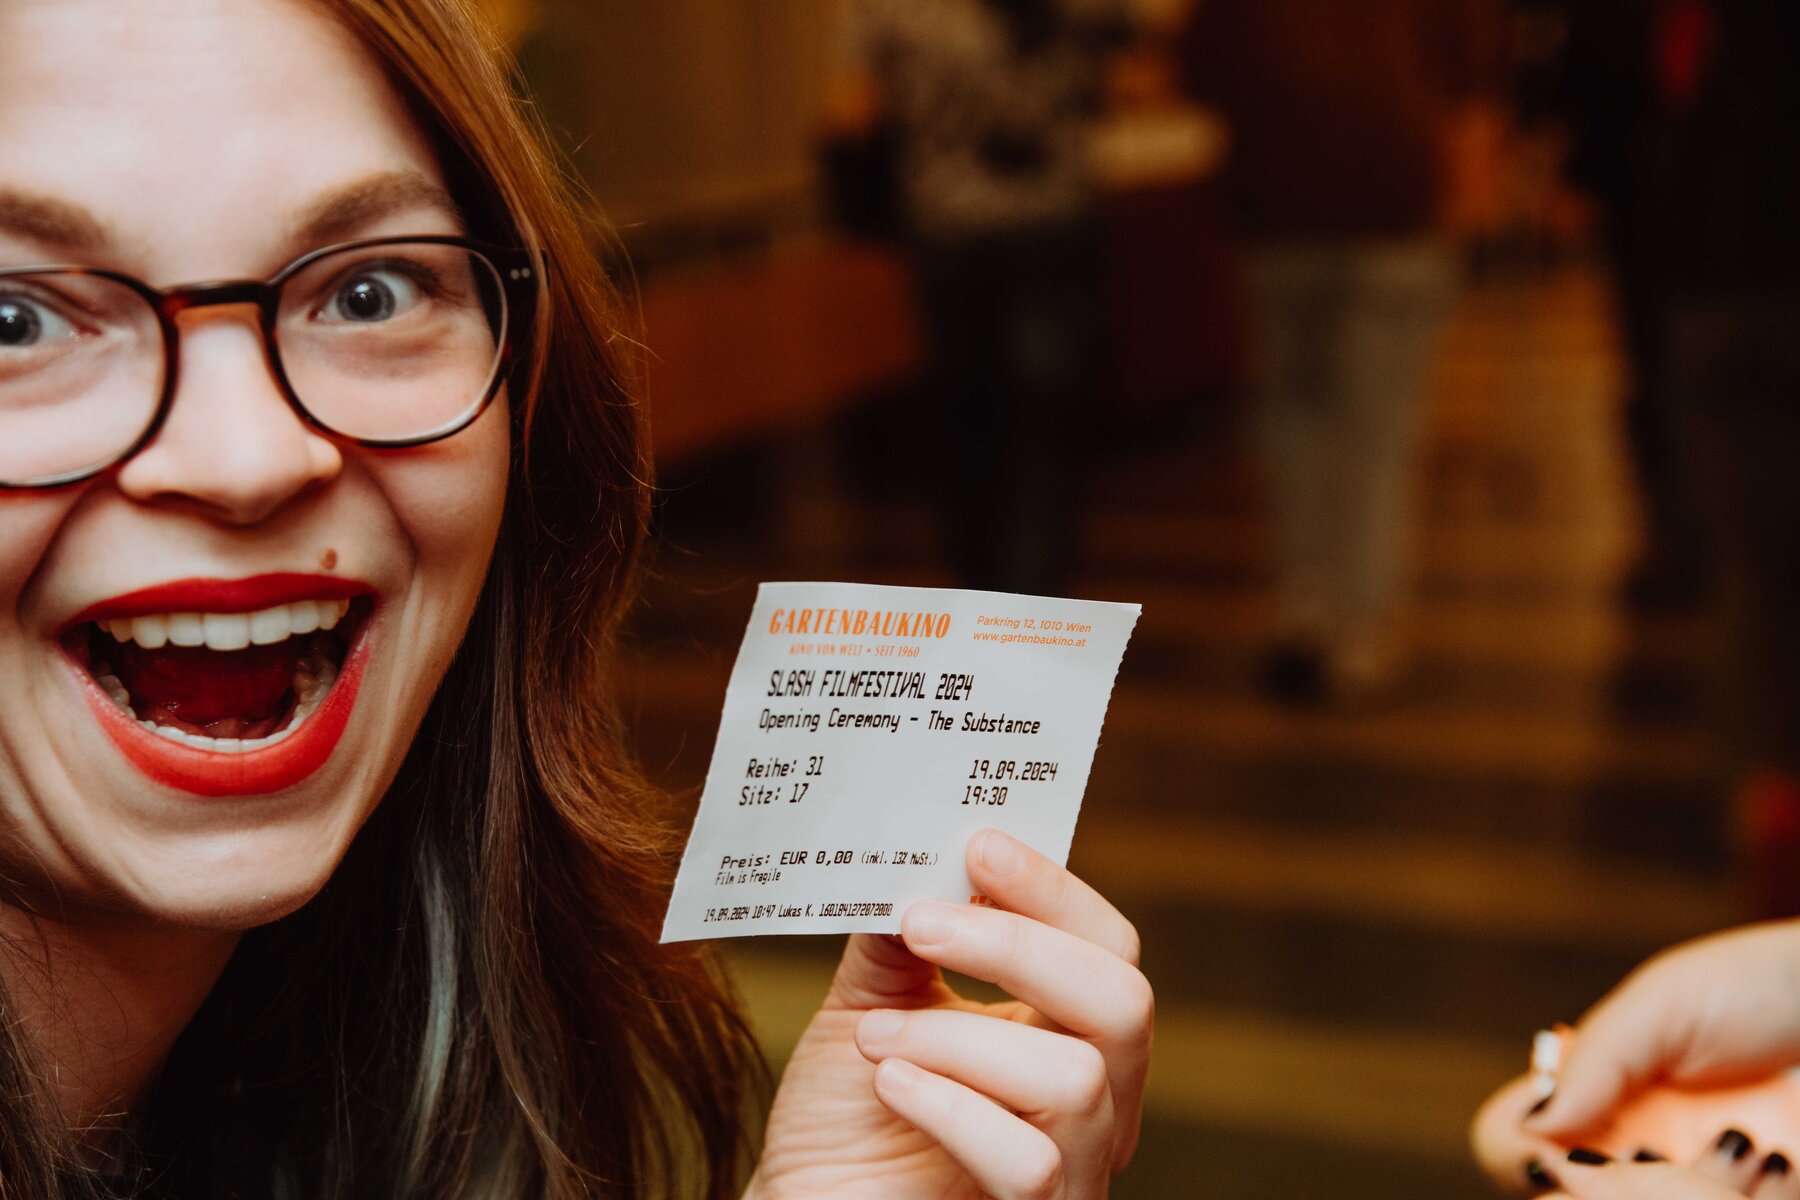 GARTENBAUKINO
KINO VON WELT • SEIT 1960
Parkring 12, 1010 Wien
www.gartenbaukino.at
SLASH FILMFESTIVAL 2024
Opening Ceremony - The Substance
Reihe: 31
Sitz: 17
19.09.2024
19:30
Preis: EUR 0,00 (inkl. 13% MwSt.)
Film is Fragile
19.09.2024 10:47 Lukas K. 1601841272072000